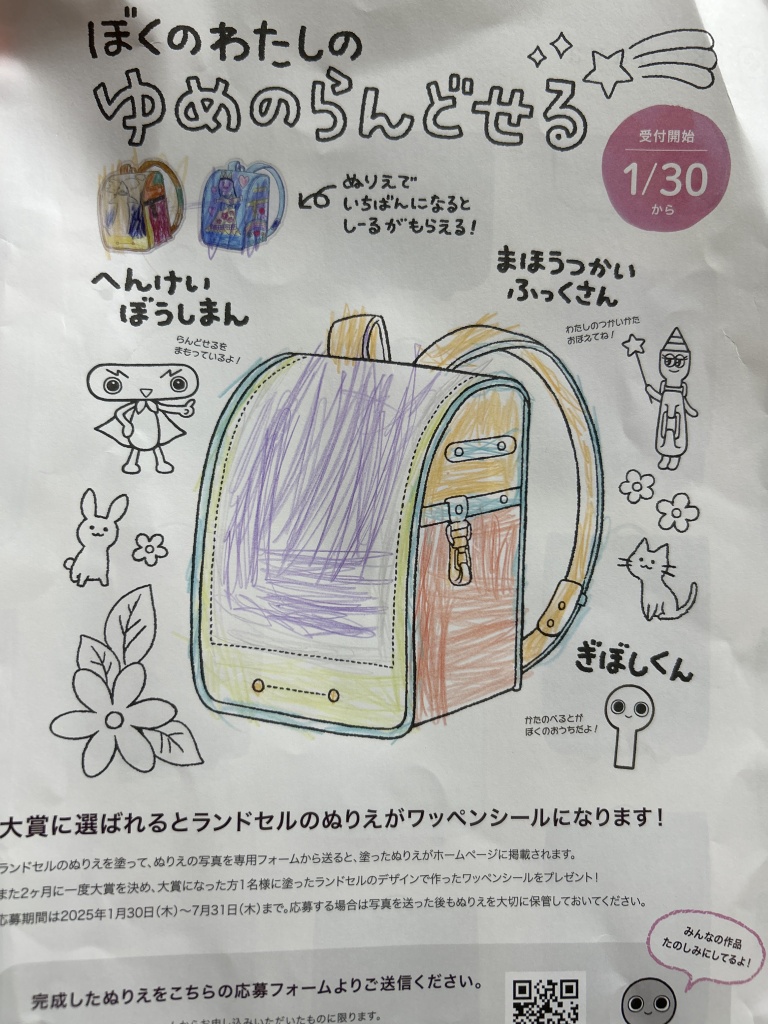 ぼくのわたしの
ゆめのらんどせる
受付開始
1/30
から
ぬりえで
いちばんになると
しーるがもらえる！
へんけい
ぼうしまん
らんどせるを
まもっているよ！
まほうつかい
ふっくさん
わたしのつかいかた
おぼえてね！
ぎぼしくん
かたのべるとが
ぼくのおうちだよ！
大賞に選ばれるとランドセルのぬりえがワッペンシールになります！
ランドセルのぬりえを塗って、ぬりえの写真を専用フォームから送ると、塗ったぬりえがホームページに掲載されます。
また2ヶ月に一度大賞を決め、大賞になった方1名様に塗ったランドセルのデザインで作ったワッペンシールをプレゼント！
応募期間は2025年1月30日(木)～7月31日(木)まで。応募する場合は写真を送った後もぬりえを大切に保管しておいてください。
みんなの作品
たのしみにしてるよ！
完成したぬりえをこちらの応募フォームよりご送信ください。
からお申し込みいただいたものに限ります。